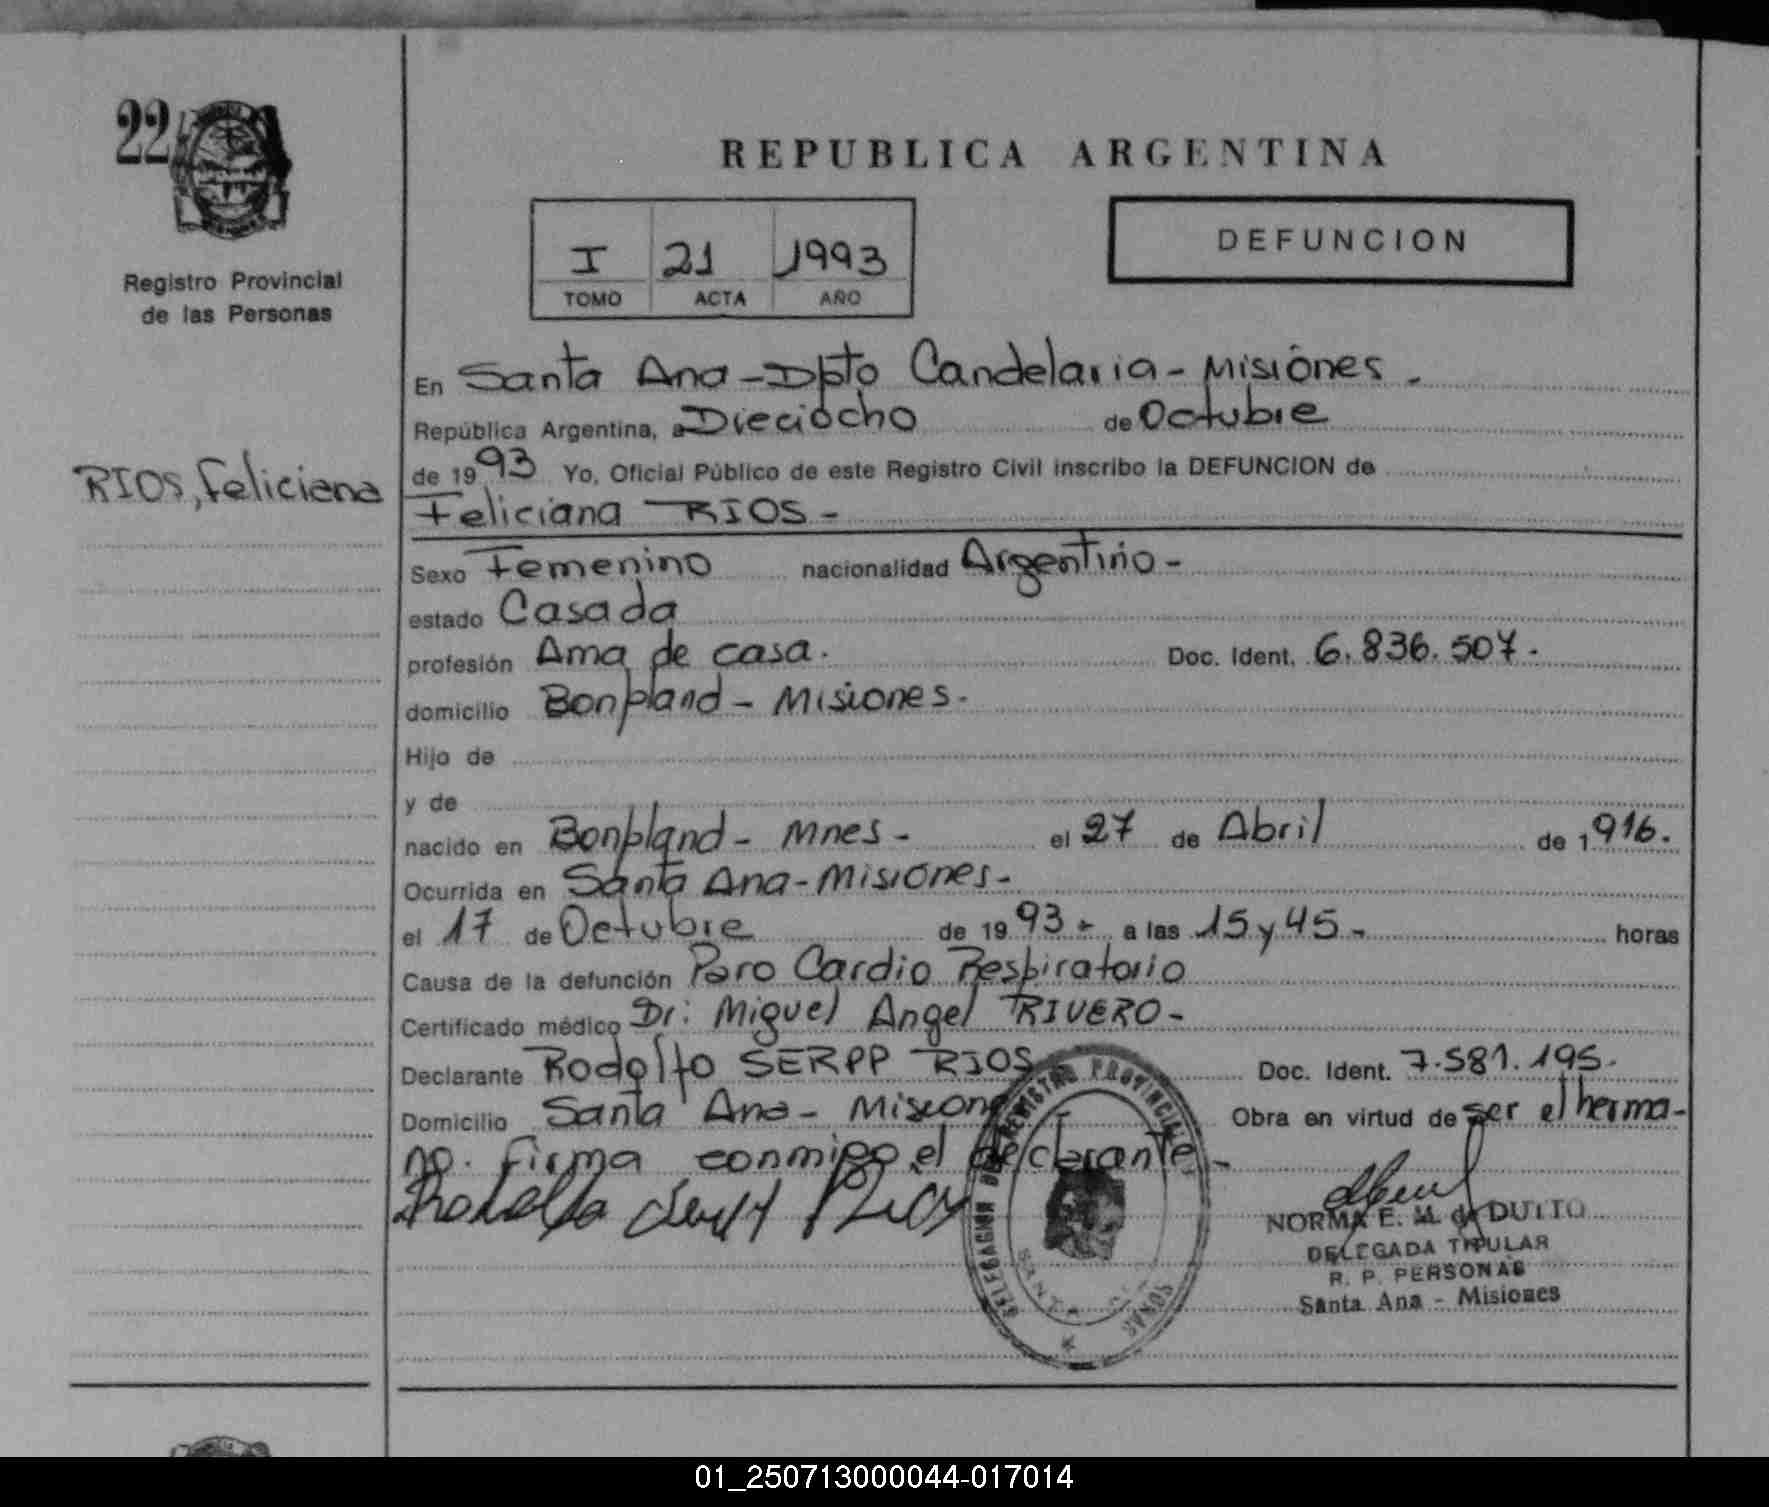 22
REPUBLICA ARGENTINA
I 21 1993
TOMO ACTA AÑO
DEFUNCION
Registro Provincial
de las Personas
RIOS, Feliciana
En Santa Ana - Dpto Candelaria - Misiones.
República Argentina, a Dieciocho de Octubre
de 1993 Yo, Oficial Público de este Registro Civil inscribo la DEFUNCION de
Feliciana RIOS -
Sexo Femenino nacionalidad Argentino -
estado Casada
profesión Ama de casa. Doc. Ident. 6.836.507.
domicilio Bonpland - Misiones.
Hijo de
y de
nacido en Bonpland - Mnes - el 27 de Abril de 1916.
Ocurrida en Santa Ana - Misiones -
el 17 de Octubre de 1993 - a las 15 y 45 - horas
Causa de la defunción Paro Cardio Respiratorio
Certificado médico Dr: Miguel Angel RIVERO -
Declarante Rodolfo SERPP RIOS Doc. Ident. 7.581.195.
Domicilio Santa Ana - Misiones Obra en virtud de ser el herma-
no. Firma conmigo el declarante -
Rodolfo Serpp Rios
DELEGACION DEL REGISTRO PROVINCIAL
SANTA
NORMA E. M. de DUTTO
DELEGADA TITULAR
R. P. PERSONAS
Santa Ana - Misiones
01_250713000044-017014